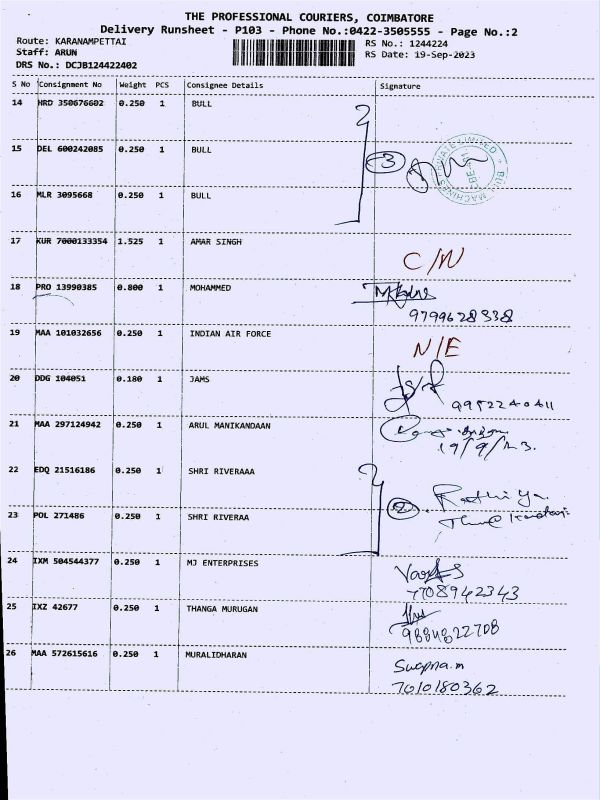 THE PROFESSIONAL COURIERS, COIMBATORE
Delivery Runsheet - P103 - Phone No.:0422-3505555 - Page No.:2
Route: KARANAMPETTAI
RS No.: 1244224
Staff: ARUN
RS Date: 19-Sep-2023
DRS No.: DCJB124422402
S No Consignment No Weight PCS Consignee Details Signature
14 HRD 350676602 0.250 1 BULL
15 DEL 600242085 0.250 1 BULL 3
BULL MACHINES PRIVATE LIMITED CBE
16 MLR 3095668 0.250 1 BULL
17 KUR 7000133354 1.525 1 AMAR SINGH C/N
18 PRO 13990385 0.800 1 MOHAMMED
9799628338
19 MAA 101032656 0.250 1 INDIAN AIR FORCE N/E
20 DDG 104051 0.180 1 JAMS
9952240411
21 MAA 297124942 0.250 1 ARUL MANIKANDAAN
19/9/23.
22 EDQ 21516186 0.250 1 SHRI RIVERAAA
23 POL 271486 0.250 1 SHRI RIVERAA 2
24 IXM 504544377 0.250 1 MJ ENTERPRISES
7708942343
25 IXZ 42677 0.250 1 THANGA MURUGAN
9884822708
26 MAA 572615616 0.250 1 MURALIDHARAN
Swapna.m
7010180362